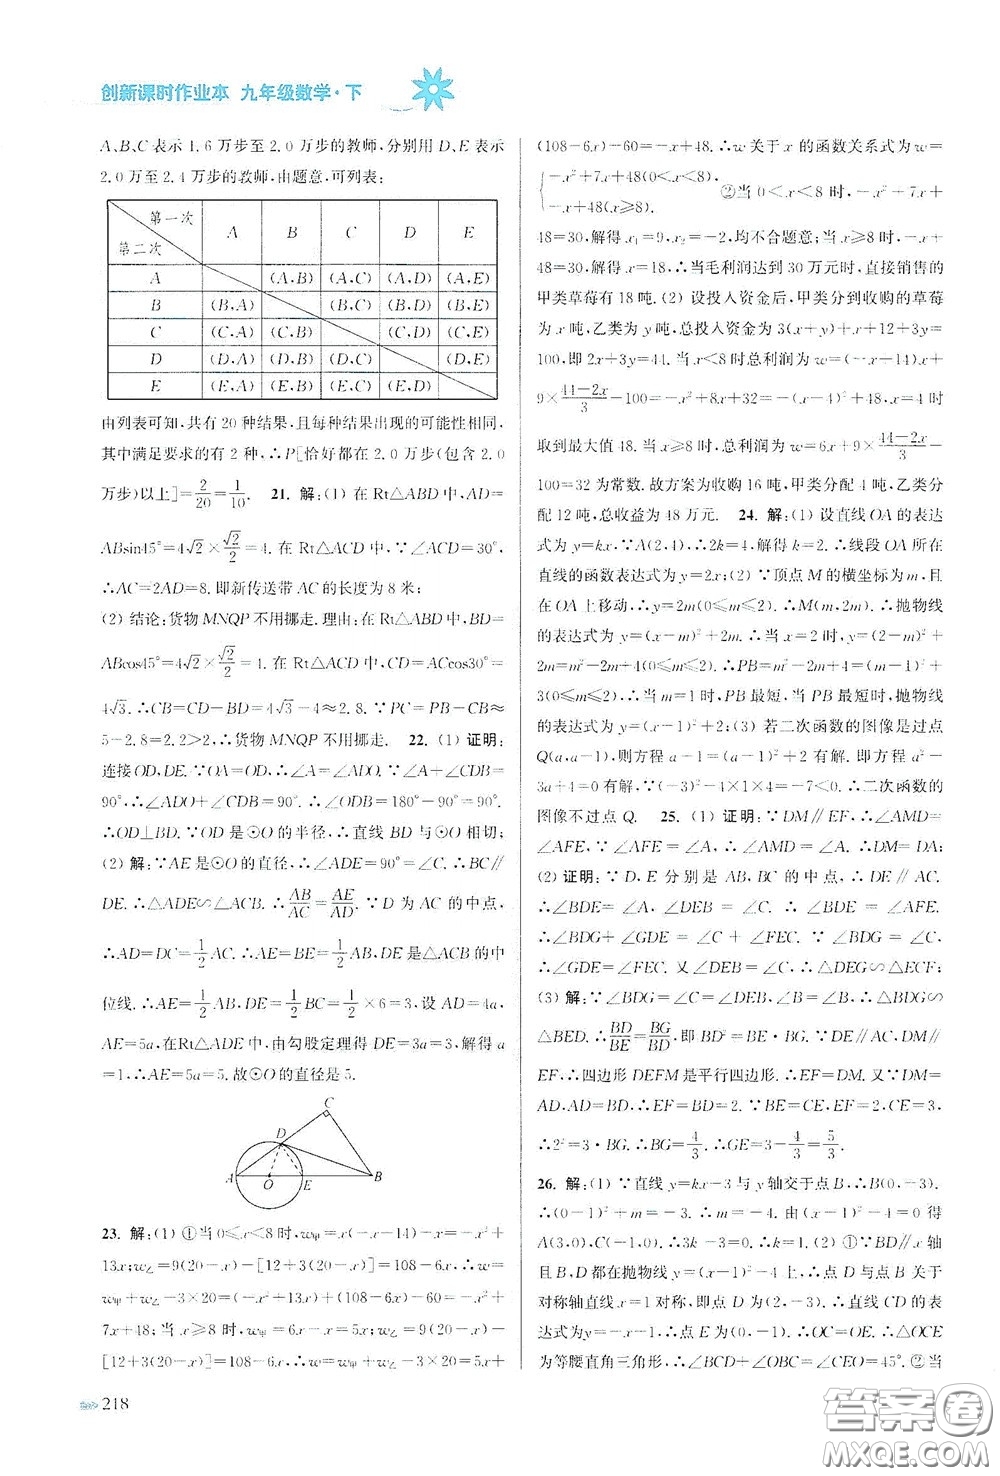 创新课时作业本 九年级数学·下
A、B、C 表示 1.6 万步至 2.0 万步的教师,分别用 D、E 表示
2.0 万至 2.4 万步的教师,由题意,可列表:
第一次
第二次
A B C D E
A (A,B) (A,C) (A,D) (A,E)
B (B,A) (B,C) (B,D) (B,E)
C (C,A) (C,B) (C,D) (C,E)
D (D,A) (D,B) (D,C) (D,E)
E (E,A) (E,B) (E,C) (E,D)
由列表可知,共有 20 种结果,且每种结果出现的可能性相同,
其中满足要求的有 2 种,∴P[恰好都在 2.0 万步(包含 2.0
万步)以上]=2/20=1/10. 21. 解:(1) 在 Rt△ABD 中,AD=
ABsin45°=4√2×√2/2=4. 在 Rt△ACD 中,∵∠ACD=30°,
∴AC=2AD=8. 即新传送带 AC 的长度为 8 米;
(2) 结论:货物 MNQP 不用挪走. 理由:在 Rt△ABD 中,BD=
ABcos45°=4√2×√2/2=4. 在 Rt△ACD 中,CD=ACcos30°=
4√3. ∴CB=CD-BD=4√3-4≈2.8. ∵PC=PB-CB≈
5-2.8=2.2>2,∴货物 MNQP 不用挪走. 22. (1) 证明:
连接 OD,DE. ∵OA=OD,∴∠A=∠ADO. ∵∠A+∠CDB=
90°,∴∠ADO+∠CDB=90°. ∴∠ODB=180°-90°=90°.
∴OD⊥BD. ∵OD 是⊙O 的半径,∴直线 BD 与⊙O 相切;
(2) 解:∵AE 是⊙O 的直径,∴∠ADE=90°=∠C. ∴BC∥
DE. ∴△ADE∽△ACB. ∴AB/AC=AE/AD. ∵D 为 AC 的中点,
∴AD=DC=1/2AC,AE=BE=1/2AB,DE 是△ACB 的中
位线. ∴AE=1/2AB,DE=1/2BC=1/2×6=3,设 AD=4a,
AE=5a,在Rt△ADE 中,由勾股定理得 DE=3a=3,解得 a
=1,∴AE=5a=5. 故⊙O 的直径是 5.
C
D
A O E B
23. 解:(1) ①当 0≤x<8 时,w甲=x(-x+14)-x=-x²+
13x;w乙=9(20-x)-[12+3(20-x)]=108-6x,∴w=
w甲+w乙-3×20=(-x²+13x)+(108-6x)-60=-x²+
7x+48;当 x≥8 时,w甲=6x-x=5x;w乙=9(20-x)-
[12+3(20-x)]=108-6x∴w=w甲+w乙-3×20=5x+
218
(108-6x)-60=-x+48. ∴w 关于 x 的函数关系式为 w=
{-x²+7x+48(0≤x<8), -x+48(x≥8). ②当 0<x<8 时,-x²+7x+
48=30,解得 x₁=9,x₂=-2,均不合题意;当 x≥8 时,-x+
48=30,解得 x=18,∴当毛利润达到 30 万元时,直接销售的
甲类草莓有 18 吨. (2) 设投入资金后,甲类分到收购的草莓
为 x 吨,乙类为 y 吨,总投入资金为 3(x+y)+x+12+3y=
100,即 2x+3y=44. 当 x<8 时总利润为 w=(-x+14)x+
9×(44-2x)/3-100=-x²+8x+32=-(x-4)²+48,∴x=4
取到最大值 48. 当 x≥8 时,总利润为 w=6x+9×(44-2x)/3-
100=32 为常数. 故方案为收购 16 吨,甲类分配 4 吨,乙类分
配 12 吨,总收益为 48 万元. 24. 解:(1) 设直线 OA 的表达
式为 y=kx,∵A(2,4),∴2k=4,解得 k=2. ∴线段 OA 所在
直线的函数表达式为 y=2x;(2) ∵顶点 M 的横坐标为 m,且
在 OA 上移动,∴y=2m(0≤m≤2). ∴M(m,2m). ∴抛物线
的表达式为 y=(x-m)²+2m. ∴当 x=2 时,y=(2-m)²+
2m=m²-2m+4(0≤m≤2). ∴PB=m²-2m+4=(m-1)²+
3(0≤m≤2),∴当 m=1 时,PB 最短,当 PB 最短时,抛物线
的表达式为 y=(x-1)²+2;(3) 若二次函数的图像是过点
Q(a,a-1),则方程 a-1=(a-1)²+2 有解. 即方程 a²-
3a+4=0 有解,∵(-3)²-4×1×4=-7<0. ∴二次函数的
图像不过点 Q. 25. (1) 证明:∵DM∥EF,∴∠AMD=
∠AFE. ∵∠AFE=∠A,∴∠AMD=∠A. ∴DM=DA;
(2) 证明:∵D、E 分别是 AB,BC 的中点,∴DE∥AC.
∴∠BDE=∠A,∠DEG=∠C. ∴∠BDE=∠AFE.
∴∠BDG+∠GDE=∠C+∠FEC. ∵∠BDG=∠C,
∴∠GDE=∠FEC. 又∠DEB=∠C,∴△DEG∽△ECF;
(3) 解:∵∠BDG=∠C=∠DEB,∠B=∠B,∴△BDG∽
△BED. ∴BD/BE=BG/BD,即 BD²=BE·BG. ∵DE∥AC,DM∥
EF,∴四边形 DEFM 是平行四边形. ∴EF=DM. 又∵DM=
AD,AD=BD,∴EF=BD=2. ∵BE=CE,CE=3,
∴2²=3·BG. ∴BG=4/3. ∴GE=3-4/3=5/3.
26. 解:(1) ∵直线 y=kx-3 与 y 轴交于点 B,∴B(0,-3).
∴(0-1)²+m=-3. ∴m=-4. 由(x-1)²-4=0 得
A(3,0),C(-1,0). ∴3k-3=0. ∴k=1. (2) ①∵BD∥x 轴
且 B,D 都在抛物线 y=(x-1)²-4 上,∴点 D 与点 B 关于
对称轴直线 x=1 对称,即点 D 为(2,-3). ∴直线 CD 的表
达式为 y=-x-1. ∴点 E 为(0,-1). ∴OC=OE. ∴△OCE
为等腰直角三角形,∴∠BCD+∠OBC=∠CEO=45°. ②当
答案圈
MXQE.COM